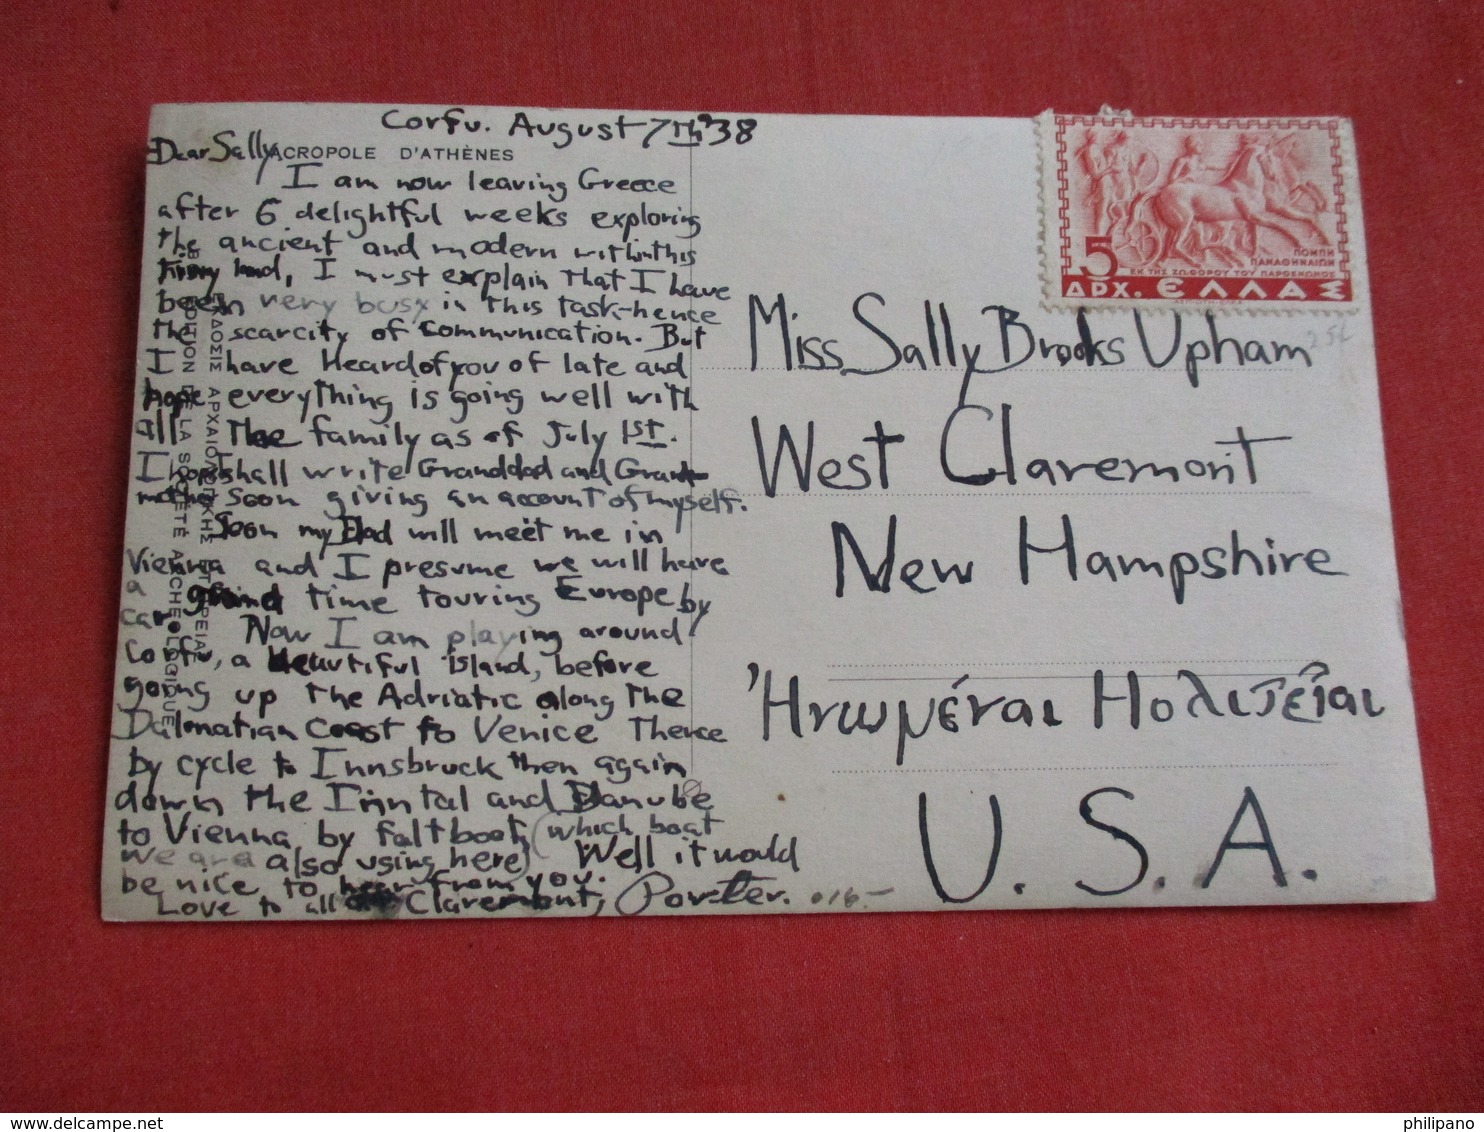 Corfu. August 7th '38
Dear Sally
ACROPOLE D'ATHÈNES
I am now leaving Greece
after 6 delightful weeks exploring
the ancient and modern within this
land, I must explain that I have
been very busy in this task-hence
the scarcity of communication. But
I have Heard of you of late and
hope everything is going well with
all the family as of July 1st.
I shall write Granddad and Grand-
mother soon giving an account of myself.
Soon my Dad will meet me in
Vienna and I presume we will have
a grand time touring Europe by
car. Now I am playing around
Corfu, a beautiful island, before
going up the Adriatic along the
Dalmatian Coast to Venice Thence
by cycle to Innsbruck then again
down the Inntal and Danube
to Vienna by faltboot, (which boat
we are also using here) Well it would
be nice to hear from you.
Love to all Claremont, Porter.
ΕΚΔΟΣΙΣ ΑΡΧΑΙΟΛΟΓΙΚΗΣ ΕΤΑΙΡΕΙΑΣ
EDITION DE LA SOCIÉTÉ ARCHÉOLOGIQUE
5
ΔΡΧ. ΕΛΛΑΣ
ΠΟΜΠΗ
ΠΑΝΑΘΗΝΑΙΩΝ
ΕΚ ΤΗΣ ΖΩΦΟΡΟΥ ΤΟΥ ΠΑΡΘΕΝΩΝΟΣ
Miss Sally Brooks Upham
West Claremont
New Hampshire
Ἡνωμέναι Πολιτεῖαι
U. S. A.
philipano
delcampe.net